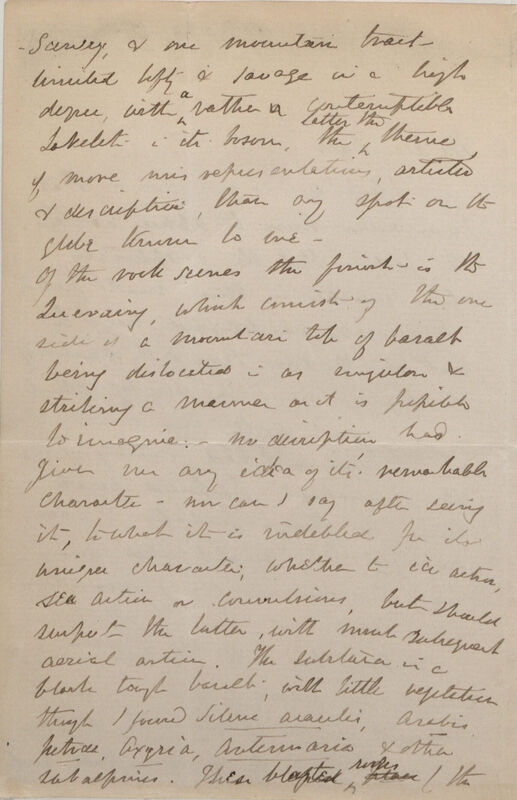 scenery, & one mountain tract
limited lofty & savage in a high
degree, with a rather a contemptible
Lakelet i its bosom, the latter the theme
of more misrepresentations, artistic
& descriptive, than any spot on the
globe known to me –
Of the rock scenes the finest is the
Quiraing, which consists of the one
side of a mountain top of basalt
being dislocated i as singular &
striking a manner as it is possible
to imagine. – no description had
given me any idea of its remarkable
character – nor can I say after seeing
it, to what it is indebted for its
unique character, whether to ice action,
sea action or convulsions, but should
suspect the latter, with much subsequent
aerial action. The substance is a
black tough basalt, with little vegetation
though I found Silene acaulis, Arabis
petraea, Oxyria, Antennaria & other
subalpines. These blasted rocks place (the